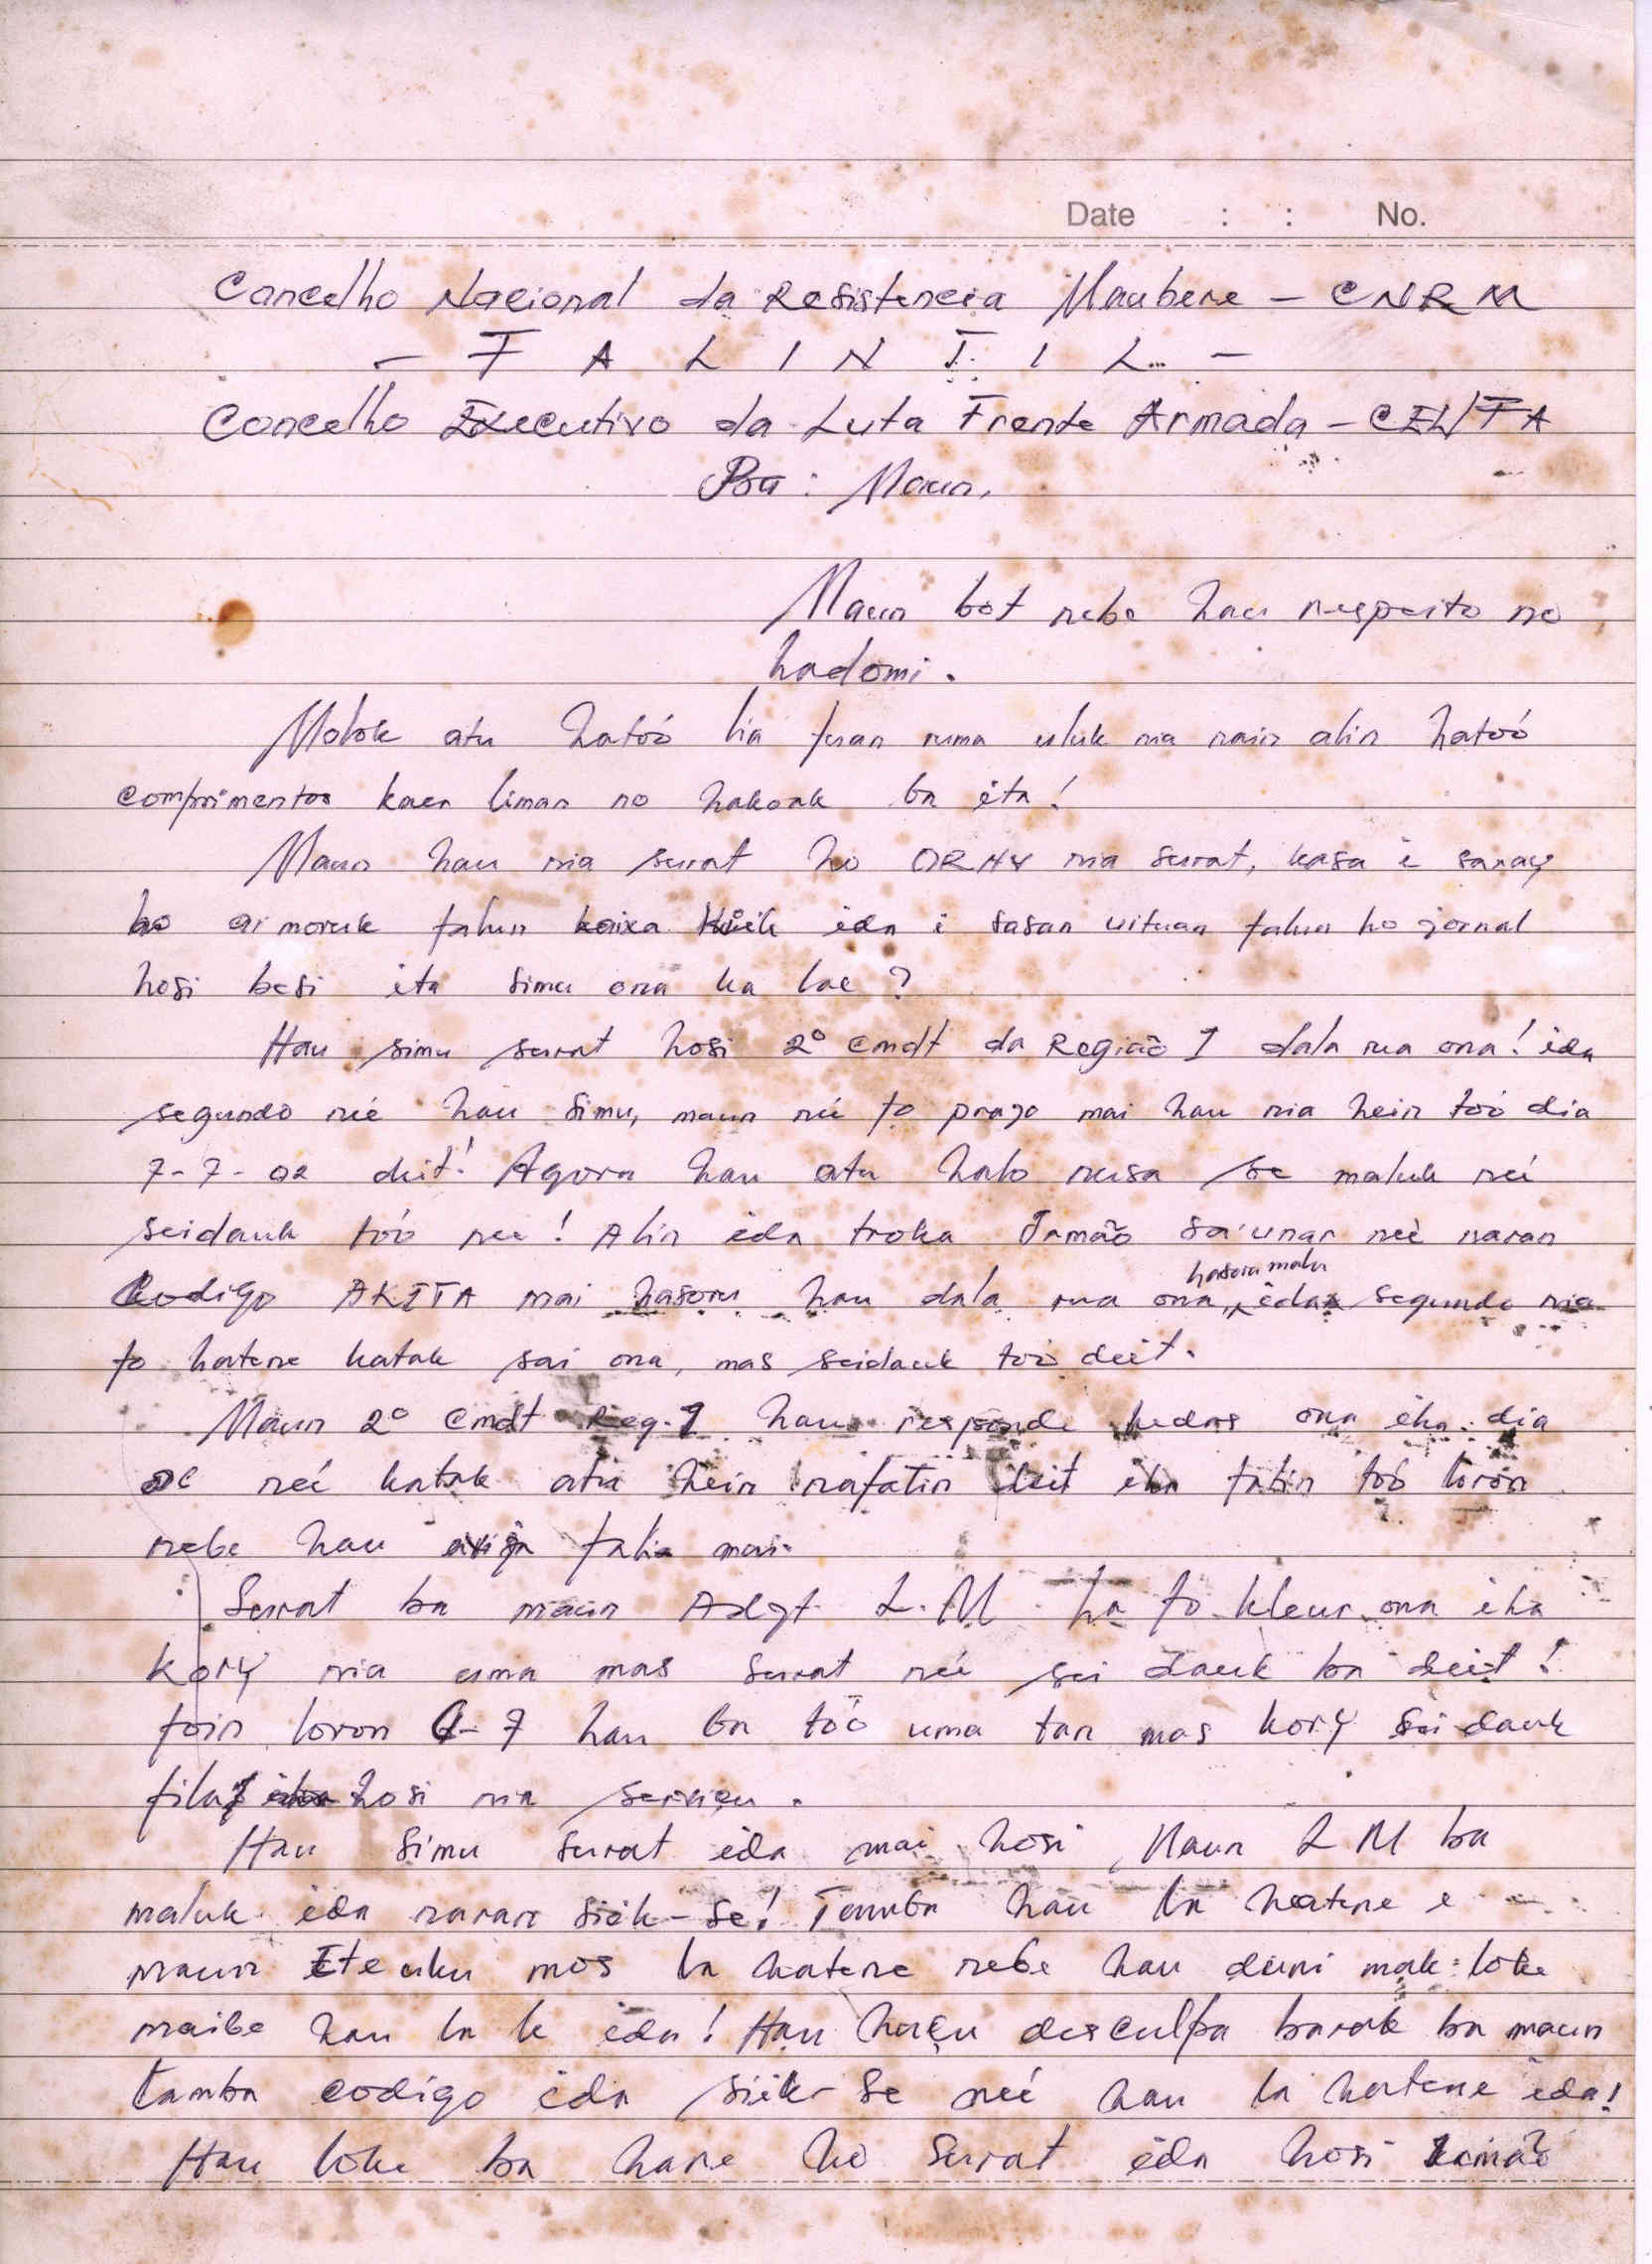 Date : : No.
Concelho Nacional da Resistencia Maubere – CNRM
– F A L I N T I L –
Concelho Executivo da Luta Frente Armada – CEL/FA
Ba : Maun,
Maun bot nebe hau respeito no
hadomi.
Molok atu hatoó lia fuan ruma uluk na nain alin hatoó
comprimentos kaer liman no hakoak ba ita!
Maun hau nia surat ho ORHY nia surat, kasa i
ho ai moruk fahun kaixa ida i sasan uituan fahun ho jornal
hosi besi ita simu ona ka lae?
Hau simu surat hosi 2º Cmdt da Região I dala rua ona! ida
segundo neé hau simu, maun neé fo prazo mai hau nia hein toó dia
7-7-02 deit! Agora hau atu halo nusa se maluk neé
seidauk toó nee! Alin ida troka Irmão Sa'unar neé naran
Codigo AKITA mai hasoru hau dala rua ona, hasoru malu ida segundo nia
fo hatene katak sai ona, mas seidauk toó deit.
Maun 2º Cmdt Reg. I hau responde kedas ona iha dia
neé katak atu hein nafatin deit iha fatin toó loron
nebe hau falia mai.
Surat ba maun Adgt. L.M. ha fo kleur ona iha
kory nia uma mas surat neé sei dauk ba deit!
foin loron 6-7 hau ba toó uma tan mas kory sei dauk
fila hosi nia servicu.
Hau simu surat ida mai hosi Maun L M ba
maluk ida naran siék-se! Tamba hau la hatene e
maun Ite uku mos la hatene nebe hau duni mak loke
maibe hau la le ida! Hau hucu desculpa barak ba maun
tamba codigo ida siék-se neé hau la hatene ida!
Hau loke ba hare ho surat ida hosi Irmão